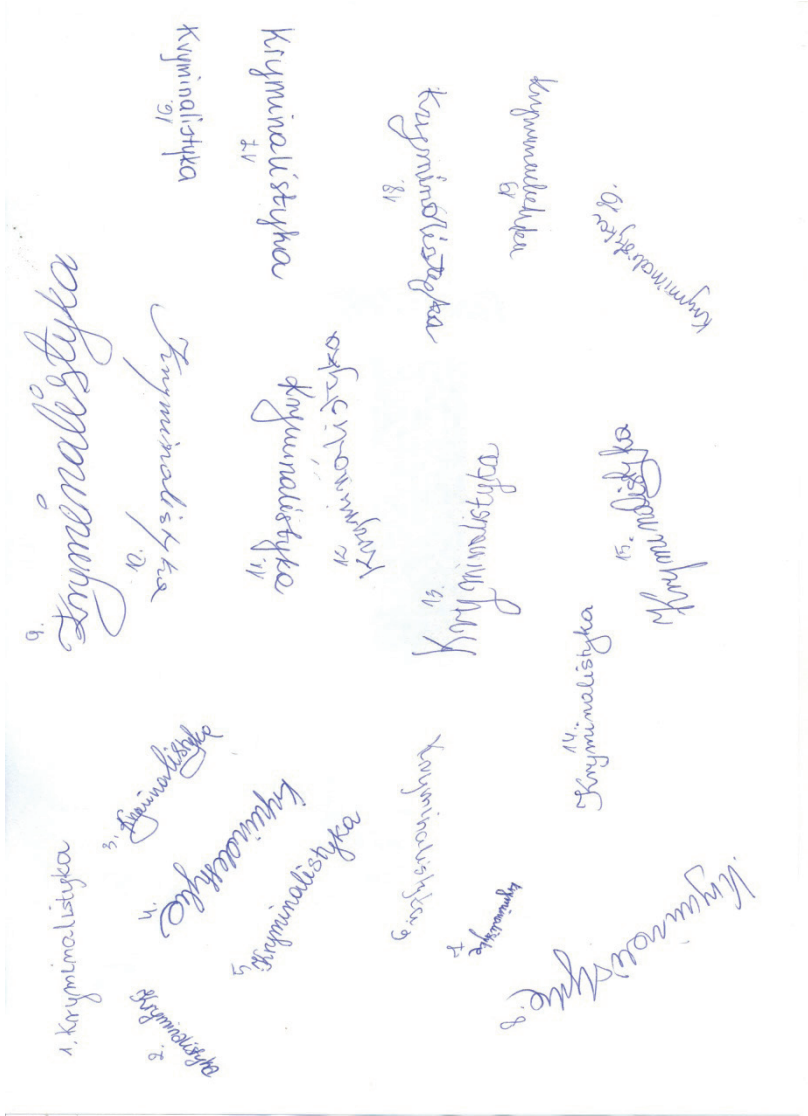 1. Kryminalistyka
2. Kryminalistyka
3. Kryminalistyka
4. Kryminalistyka
5. Kryminalistyka
6. Kryminalistyka
7. Kryminalistyka
8. Kryminalistyka
9. Kryminalistyka
10. Kryminalistyka
11. Kryminalistyka
12. Kryminalistyka
13. Kryminalistyka
14. Kryminalistyka
15. Kryminalistyka
16. Kryminalistyka
17. Kryminalistyka
18. Kryminalistyka
19. Kryminalistyka
16. Kryminalistyka